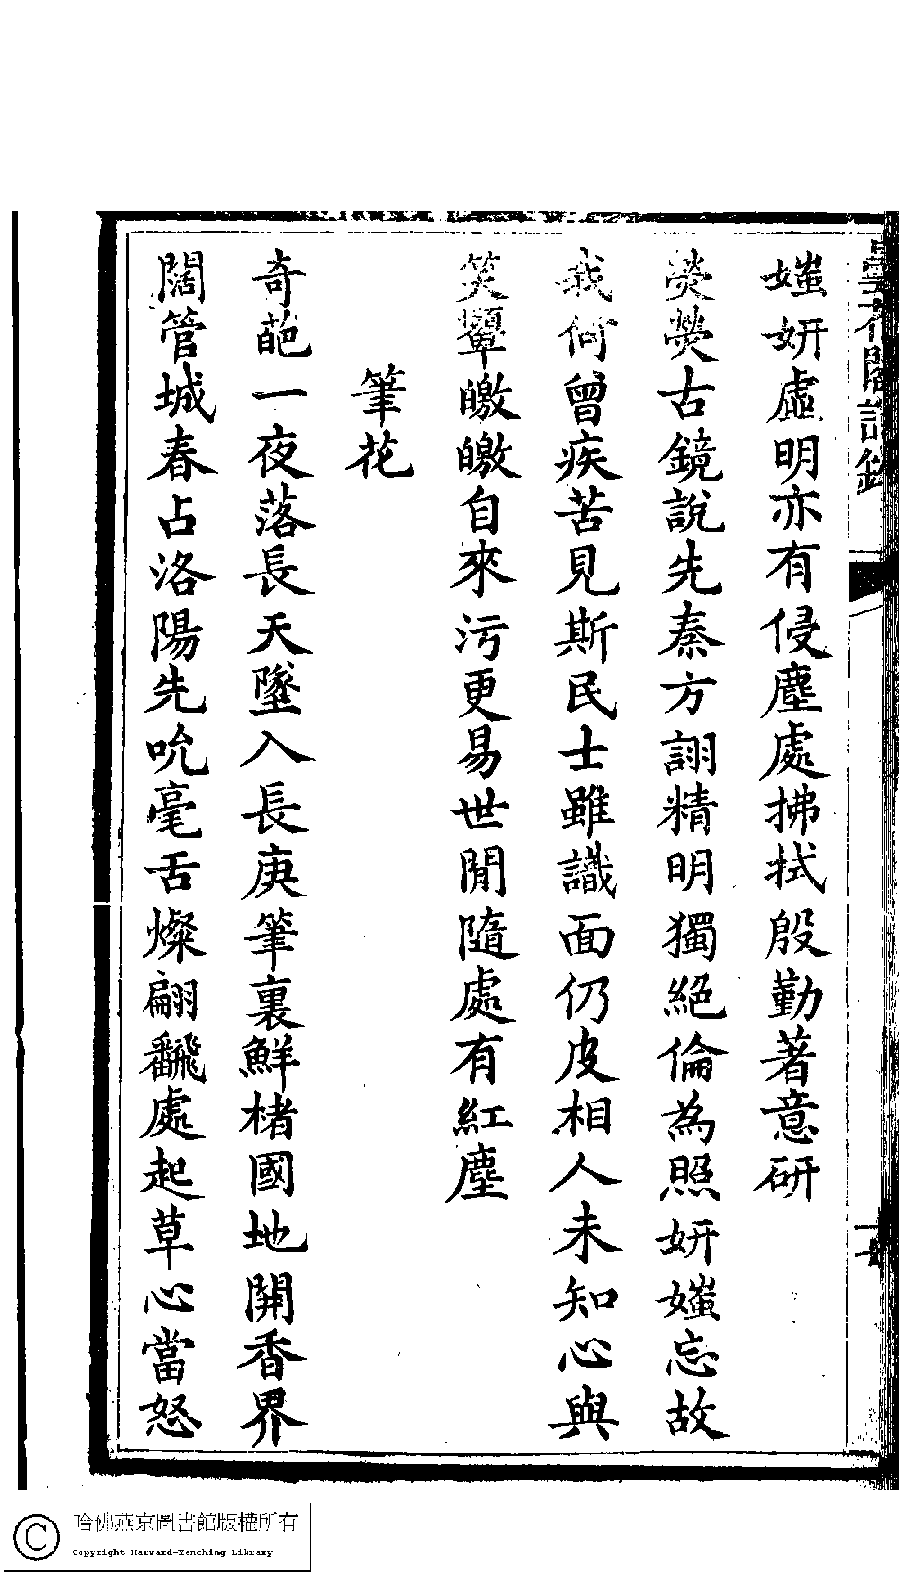 曇花閣詩鈔
媸妍虛明亦有侵塵處拂拭殷勤著意研
熒熒古鏡說先秦方詡精明獨絕倫為照妍媸忘故
我何曾疾苦見斯民士雖識面仍皮相人未知心與
笑顰皦皦自來污更易世閒隨處有紅塵
筆花
奇葩一夜落長天墜入長庚筆裏鮮楮國地開香界
闊管城春占洛陽先吮毫舌燦翩飜處起草心當怒
哈佛燕京圖書館版權所有
Copyright Harvard-Yenching Library